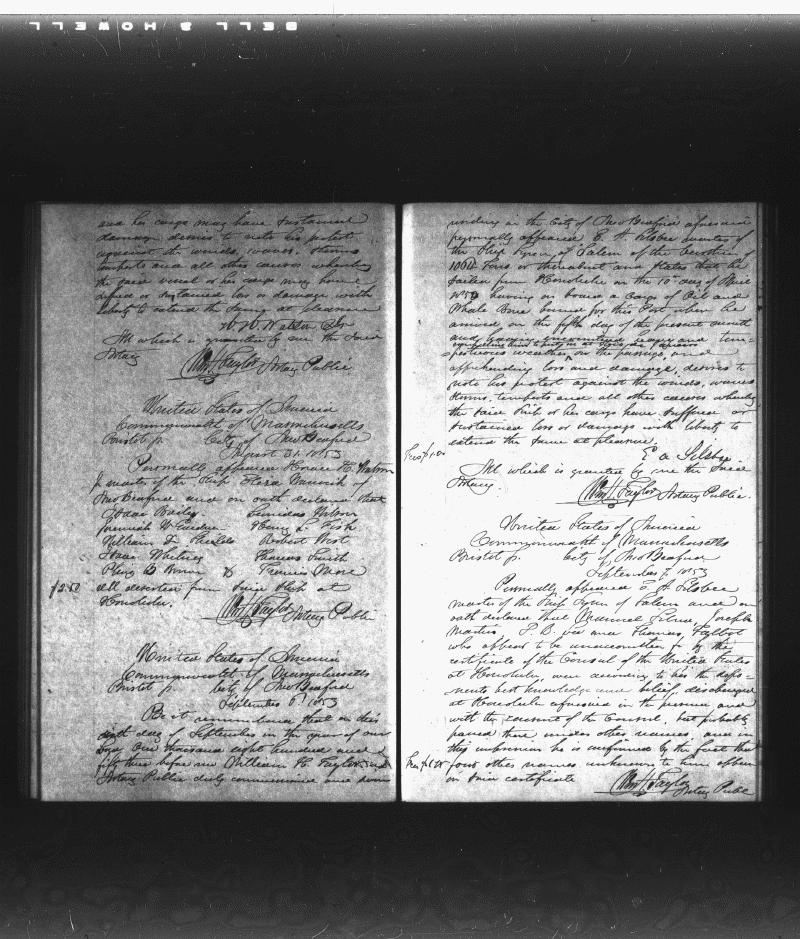 BELL & HOWELL
and her cargo may have sustained
damage desires to note his protest
against the winds, waves, storms
tempests and all other causes whereby
the said vessel or her cargo may have
suffered or sustained loss or damage with
liberty to extend the same at pleasure
All which is granted by me the said
Notary
Wm H Taylor Notary Public
United States of America
Commonwealth of Massachusetts
Bristol ss. City of New Bedford
August 31. 1853
Personally appeared Horace H.
master of the Ship
New Bedford and on oath declared that
Isaac Bailey
Jeremiah W Henry L Fish
William F Robert West
Isaac Whitney Thomas Smith
& Francis
$2.50 all deserted from said Ship at
Honolulu.
Wm H Taylor Notary Public
United States of America
Commonwealth of Massachusetts
Bristol ss. City of New Bedford
September 6th 1853
Be it remembered that on this
sixth day of September in the year of our
Lord One thousand eight hundred and
fifty three before me William H. Taylor
Notary Public duly commissioned and sworn
residing in the City of New Bedford aforesaid
personally appeared E. A master of
the Ship of Salem of the burthen of
Tons or thereabout and states that he
sailed from Honolulu on the 10th day of April
having on board a Cargo of Oil and
Whale Bone bound for this Port when he
arrived on the fifth day of the present month
and having encountered heavy and tem-
pestuous weather on the passage, and
apprehending loss and damage, desires to
note his protest against the winds, waves
storms, tempests and all other causes whereby
the said Ship or her cargo have suffered or
sustained loss or damage with liberty to
extend the same at pleasure.
E A
All which is granted by me the said
Notary.
Wm H Taylor Notary Public.
United States of America
Commonwealth of Massachusetts
Bristol ss. City of New Bedford
September 7, 1853
Personally appeared E. A
master of the Ship of Salem and on
oath declared that Manuel Silva, Joseph
and Thomas Talbot
who appear to be unaccounted for by the
certificate of the Consul of the United States
at Honolulu, were according to his the depo-
nents best knowledge and belief, discharged
at Honolulu aforesaid in the presence and
with the consent of the Consul, but probably
passed there under other names, and in
this he is confirmed by the fact that
four other names unknown to him appear
in said certificate
Wm H Taylor
Notary Public